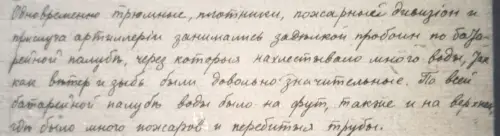 Одновременно трюмные, плотники, пожарный дивизіон и
прислуга артиллеріи занимались задѣлкой пробоин по бата-
рейной палубѣ, через которыя нахлестывало много воды, так
как вѣтер и зыбь были довольно значительные. По всей
батарейной палубѣ воды было на фут, также и на верхнем
где было много пожаров и перебитыя трубы.